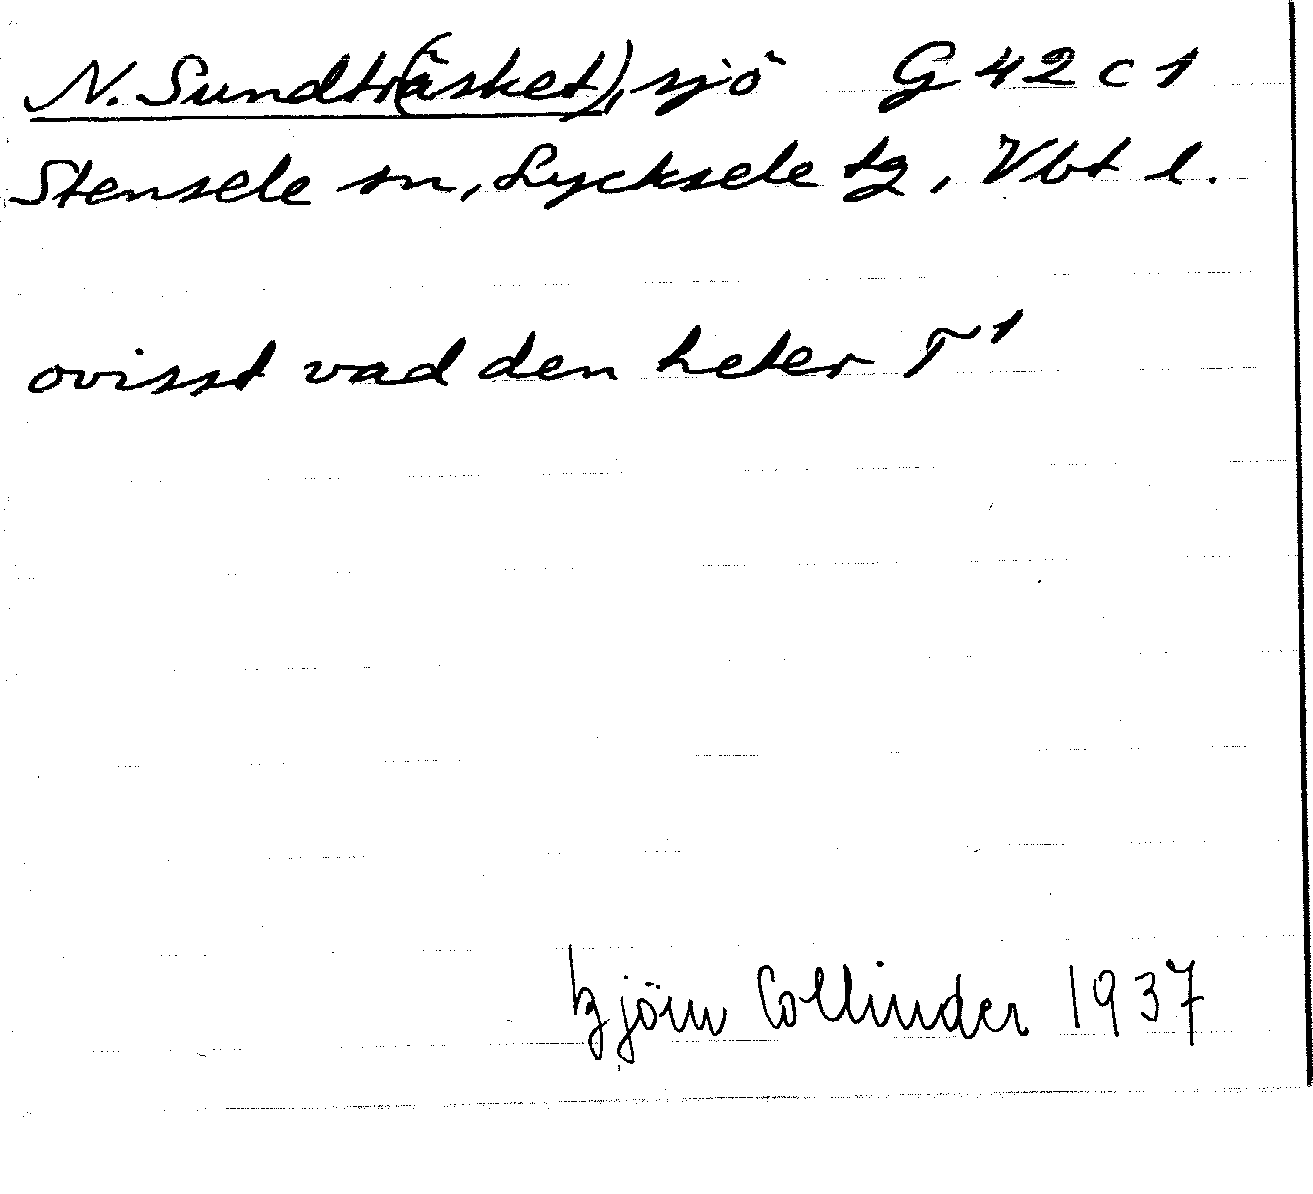 N. Sundtr(äsket), sjö G 42 c 1
Stensele sn, Lycksele tg, Vbt l.
ovisst vad den heter T¹
Björn Collinder 1937